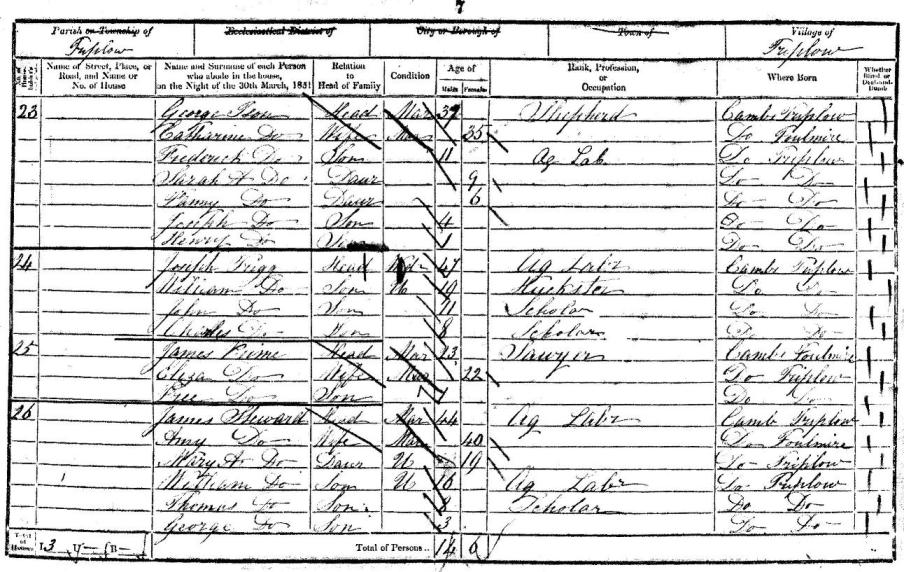 7
Parish or Township of Ecclesiastical District of City or Borough of Town of Village of
Triplow Triplow
No. of House-holder's Schedule Name of Street, Place, or Road, and Name or No. of House Name and Surname of each Person who abode in the house, on the Night of the 30th March, 1851 Relation to Head of Family Condition Age of Males Females Rank, Profession, or Occupation Where Born Whether Blind, or Deaf-and-Dumb
23 George Head Mar 37 Shepherd Cambs Triplow
Catharine Do Wife Mar 35 Do Foulmire
Frederick Do Son 11 Ag Lab Do Triplow
Sarah A Do Daur 9 Do Do
Do Daur 6 Do Do
Joseph Do Son 4 Do Do
Henry Do Son 1 Do Do
24 Joseph Trigg Head 47 Ag Labr Cambs Triplow
William Do Son U 19 Huckster Do Do
John Do Son 11 Scholar Do Do
Charles Do Son 8 Scholar Do Do
25 James Head Mar 23 Sawyer Cambs Foulmire
Eliza Do Wife Mar 22 Do Triplow
Do Son Do Do
26 James Steward Head Mar 44 Ag Labr Camb Triplow
Amy Do Wife Mar 40 Do Foulmire
Mary A Do Daur U 19 Do Triplow
William Do Son U 16 Ag Labr Do Triplow
Thomas Do Son 8 Scholar Do Do
George Do Son 3 Do Do
Total of Houses I 3 U— B— Total of Persons.. 14 6